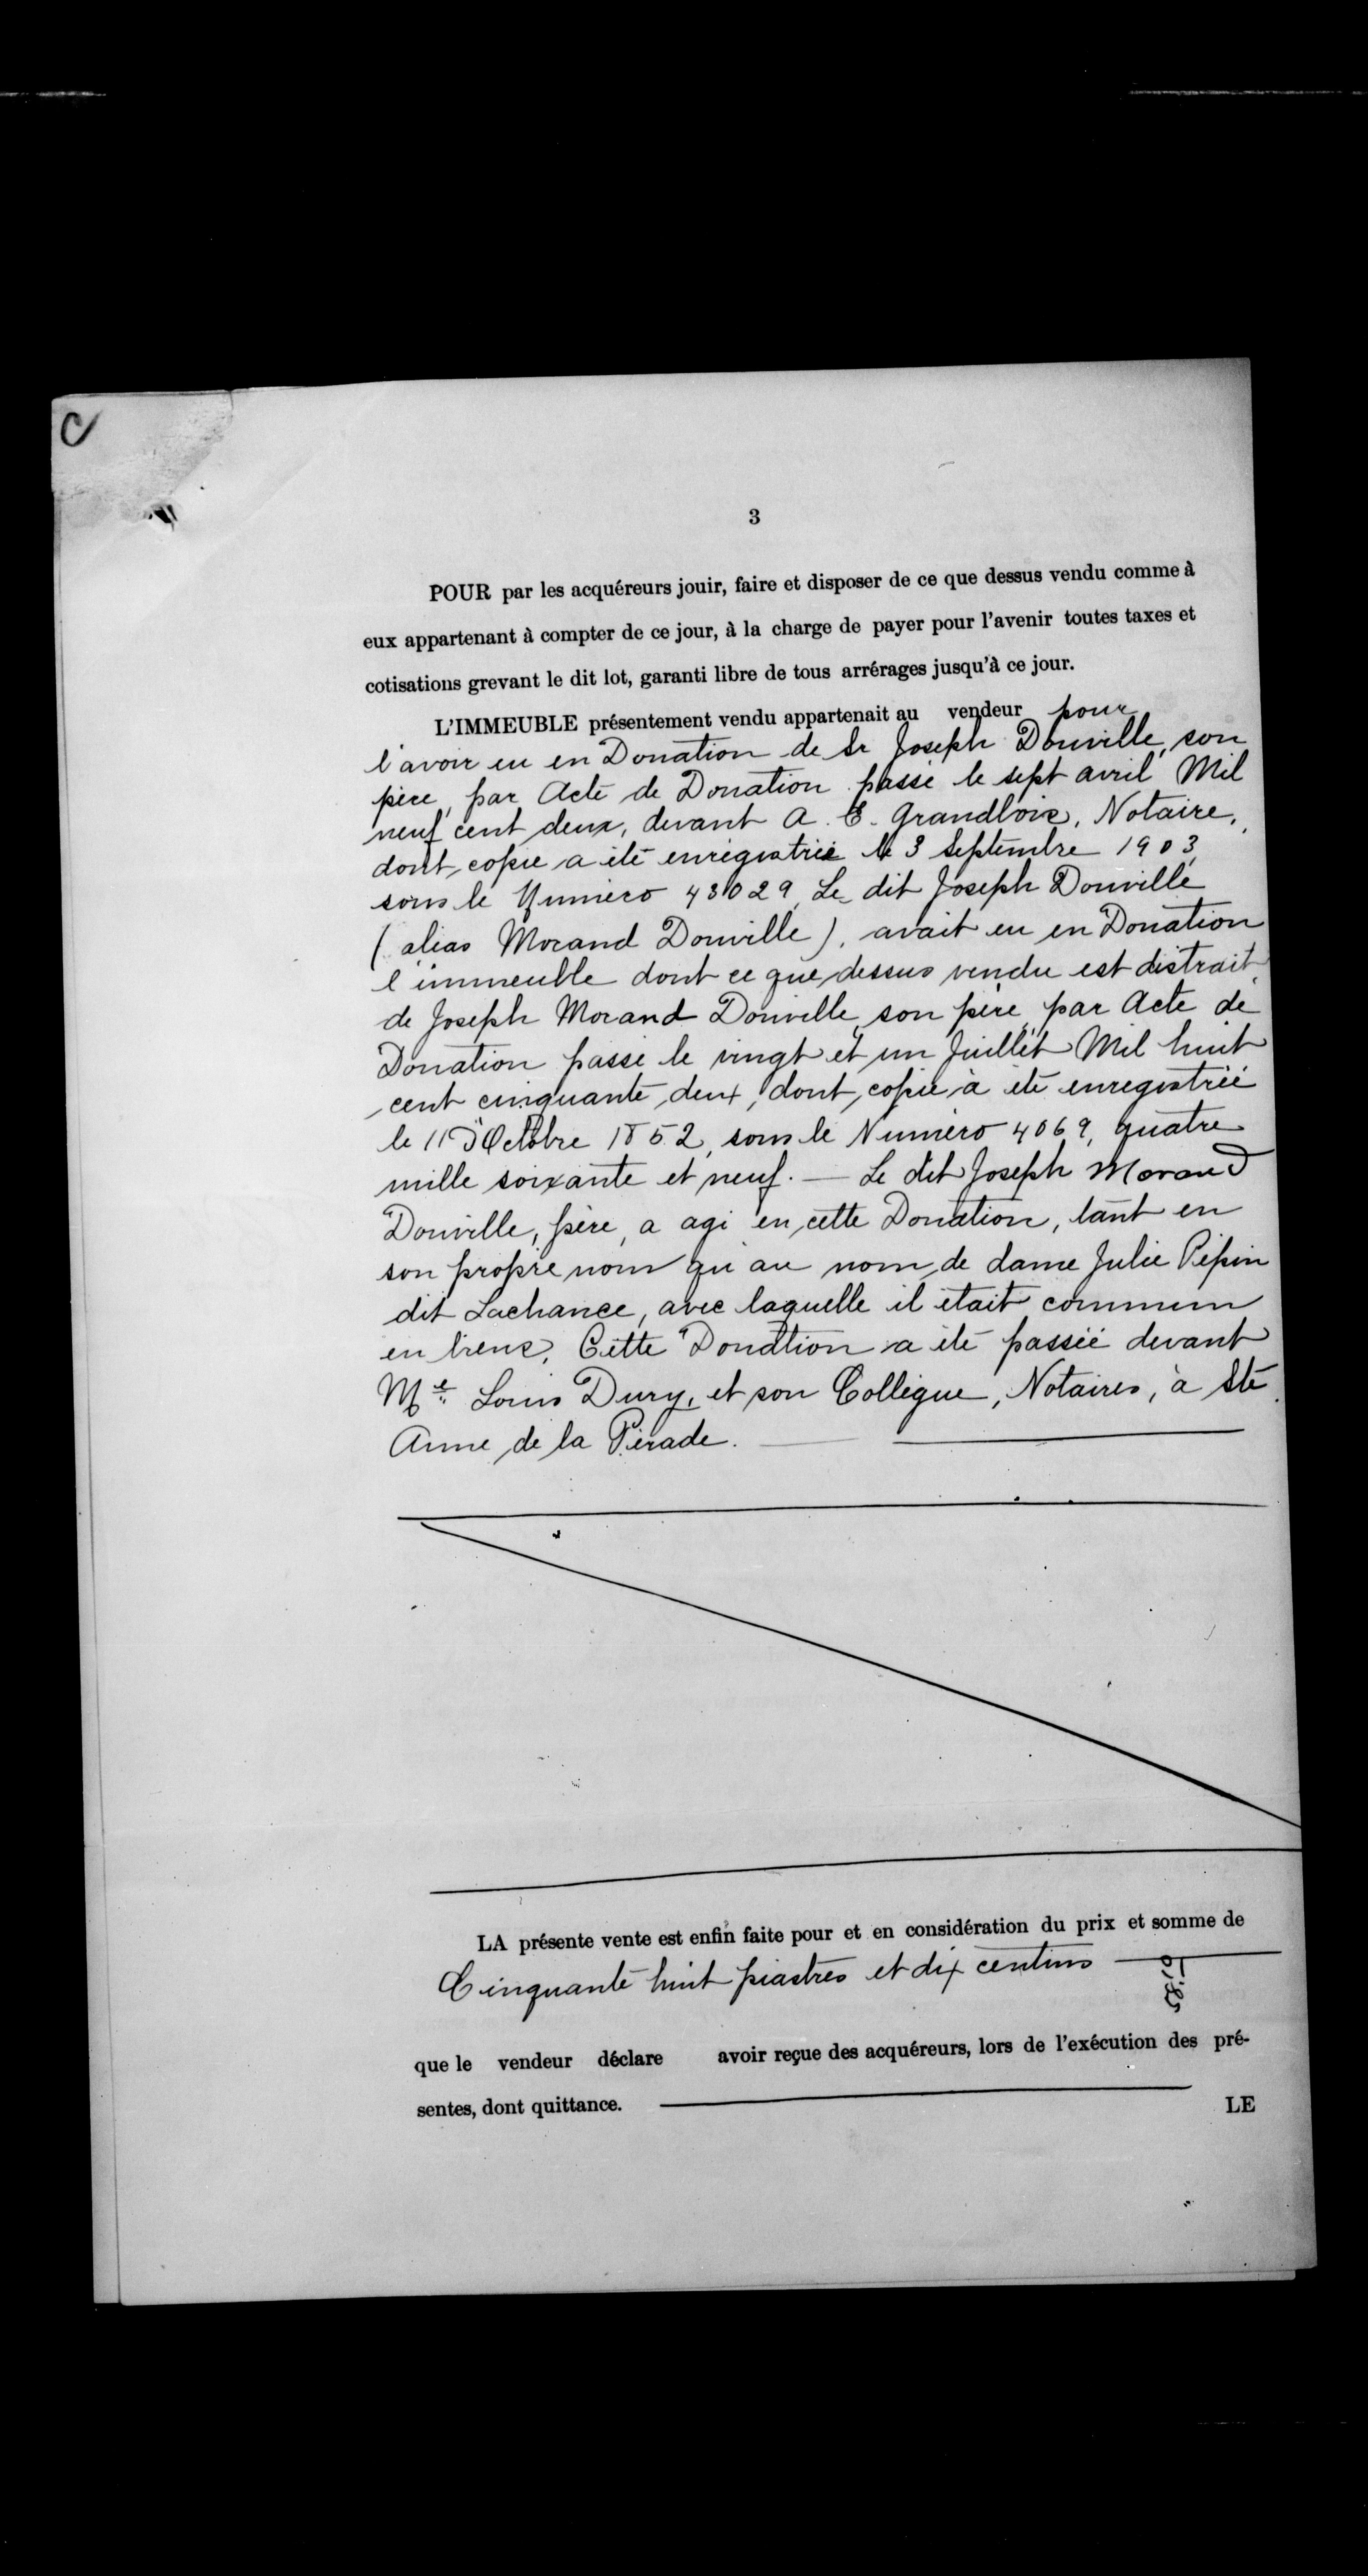 C
3
POUR par les acquéreurs jouir, faire et disposer de ce que dessus vendu comme à
eux appartenant à compter de ce jour, à la charge de payer pour l'avenir toutes taxes et
cotisations grevant le dit lot, garanti libre de tous arrérages jusqu'à ce jour.
L'IMMEUBLE présentement vendu appartenait au vendeur pour
l'avoir eu en Donation de Sr Joseph Douville, son
père, par Acte de Donation passé le sept avril Mil
neuf cent deux, devant A. E. Grandbois, Notaire,
dont copie a été enrégistrée le 3 Septembre 1903,
sous le Numéro 43029, Le dit Joseph Douville
(alias Morand Douville), avait eu en Donation
l'immeuble dont ce que dessus vendu est distrait
de Joseph Morand Douville, son père, par Acte de
Donation passé le vingt et un Juillet Mil huit
cent cinquante deux, dont copie à été enregistrée
le 11 Octobre 1852, sous le Numéro 4069, quatre
mille soixante et neuf. — Le dit Joseph Morand
Douville, père, a agi en cette Donation, tant en
son propre nom qu'au nom de dame Julie Pépin
dit Lachance, avec laquelle il était commun
en biens. Cette Donation a été passée devant
Me Louis Dury, et son Collègue, Notaires, à Ste
Anne de la Pérade.
LA présente vente est enfin faite pour et en considération du prix et somme de
Cinquante huit piastres et dix centins
58.10
que le vendeur déclare avoir reçue des acquéreurs, lors de l'exécution des pré-
sentes, dont quittance.
LE